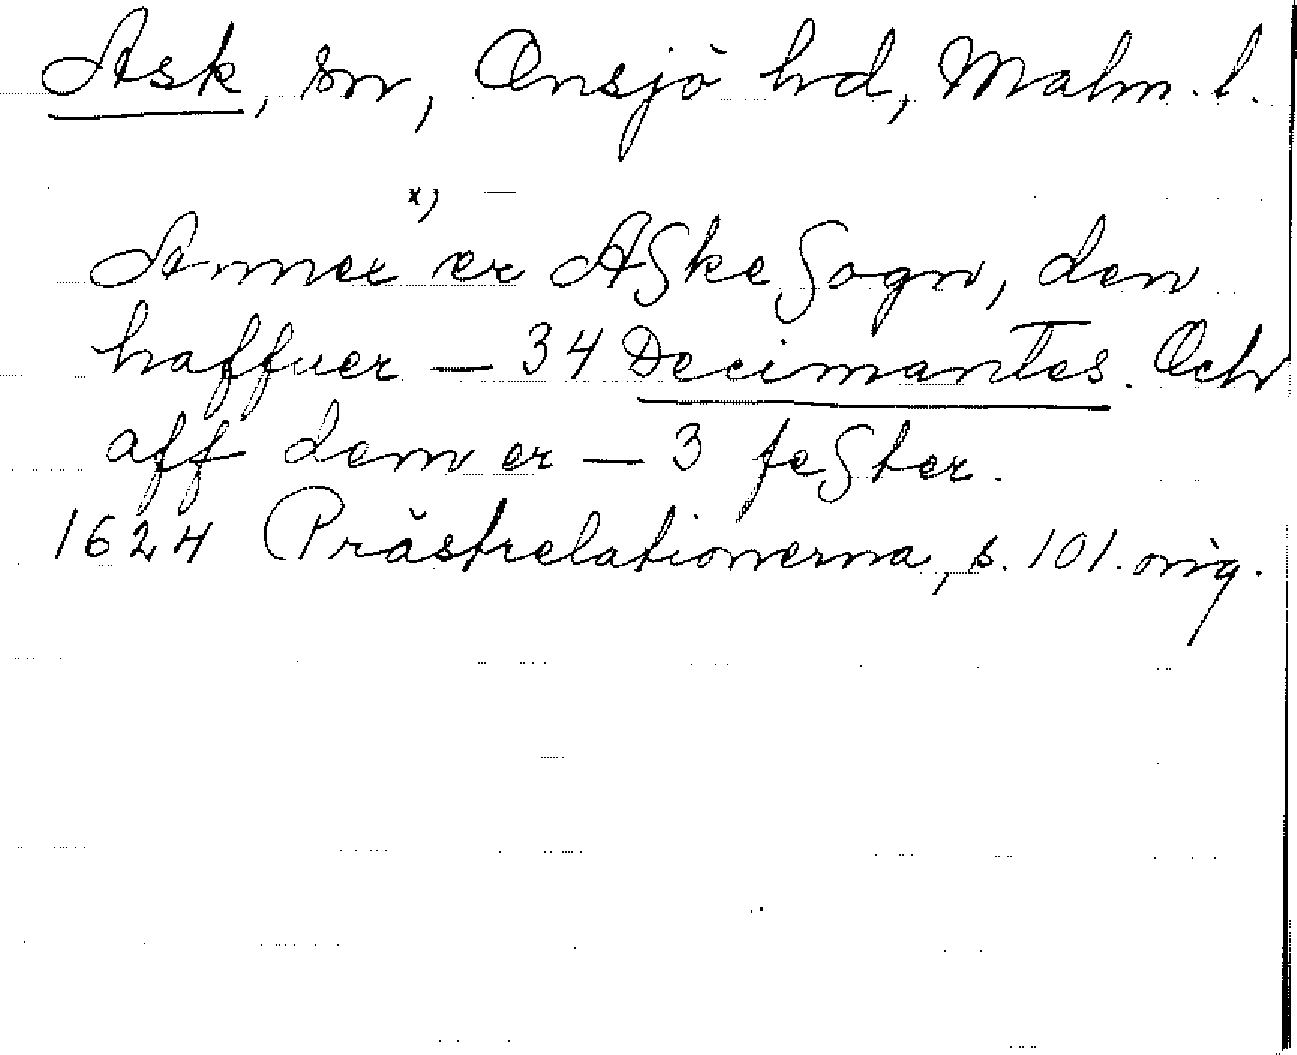 Ask, sn, Onsjö hd, Malm. l.
x) —
Anner er Aſke ſogn, den
haffuer — 34 Decimantes. Och
aff dem er — 3 feſter.
1624 Prästrelationerna, s. 101. orig.